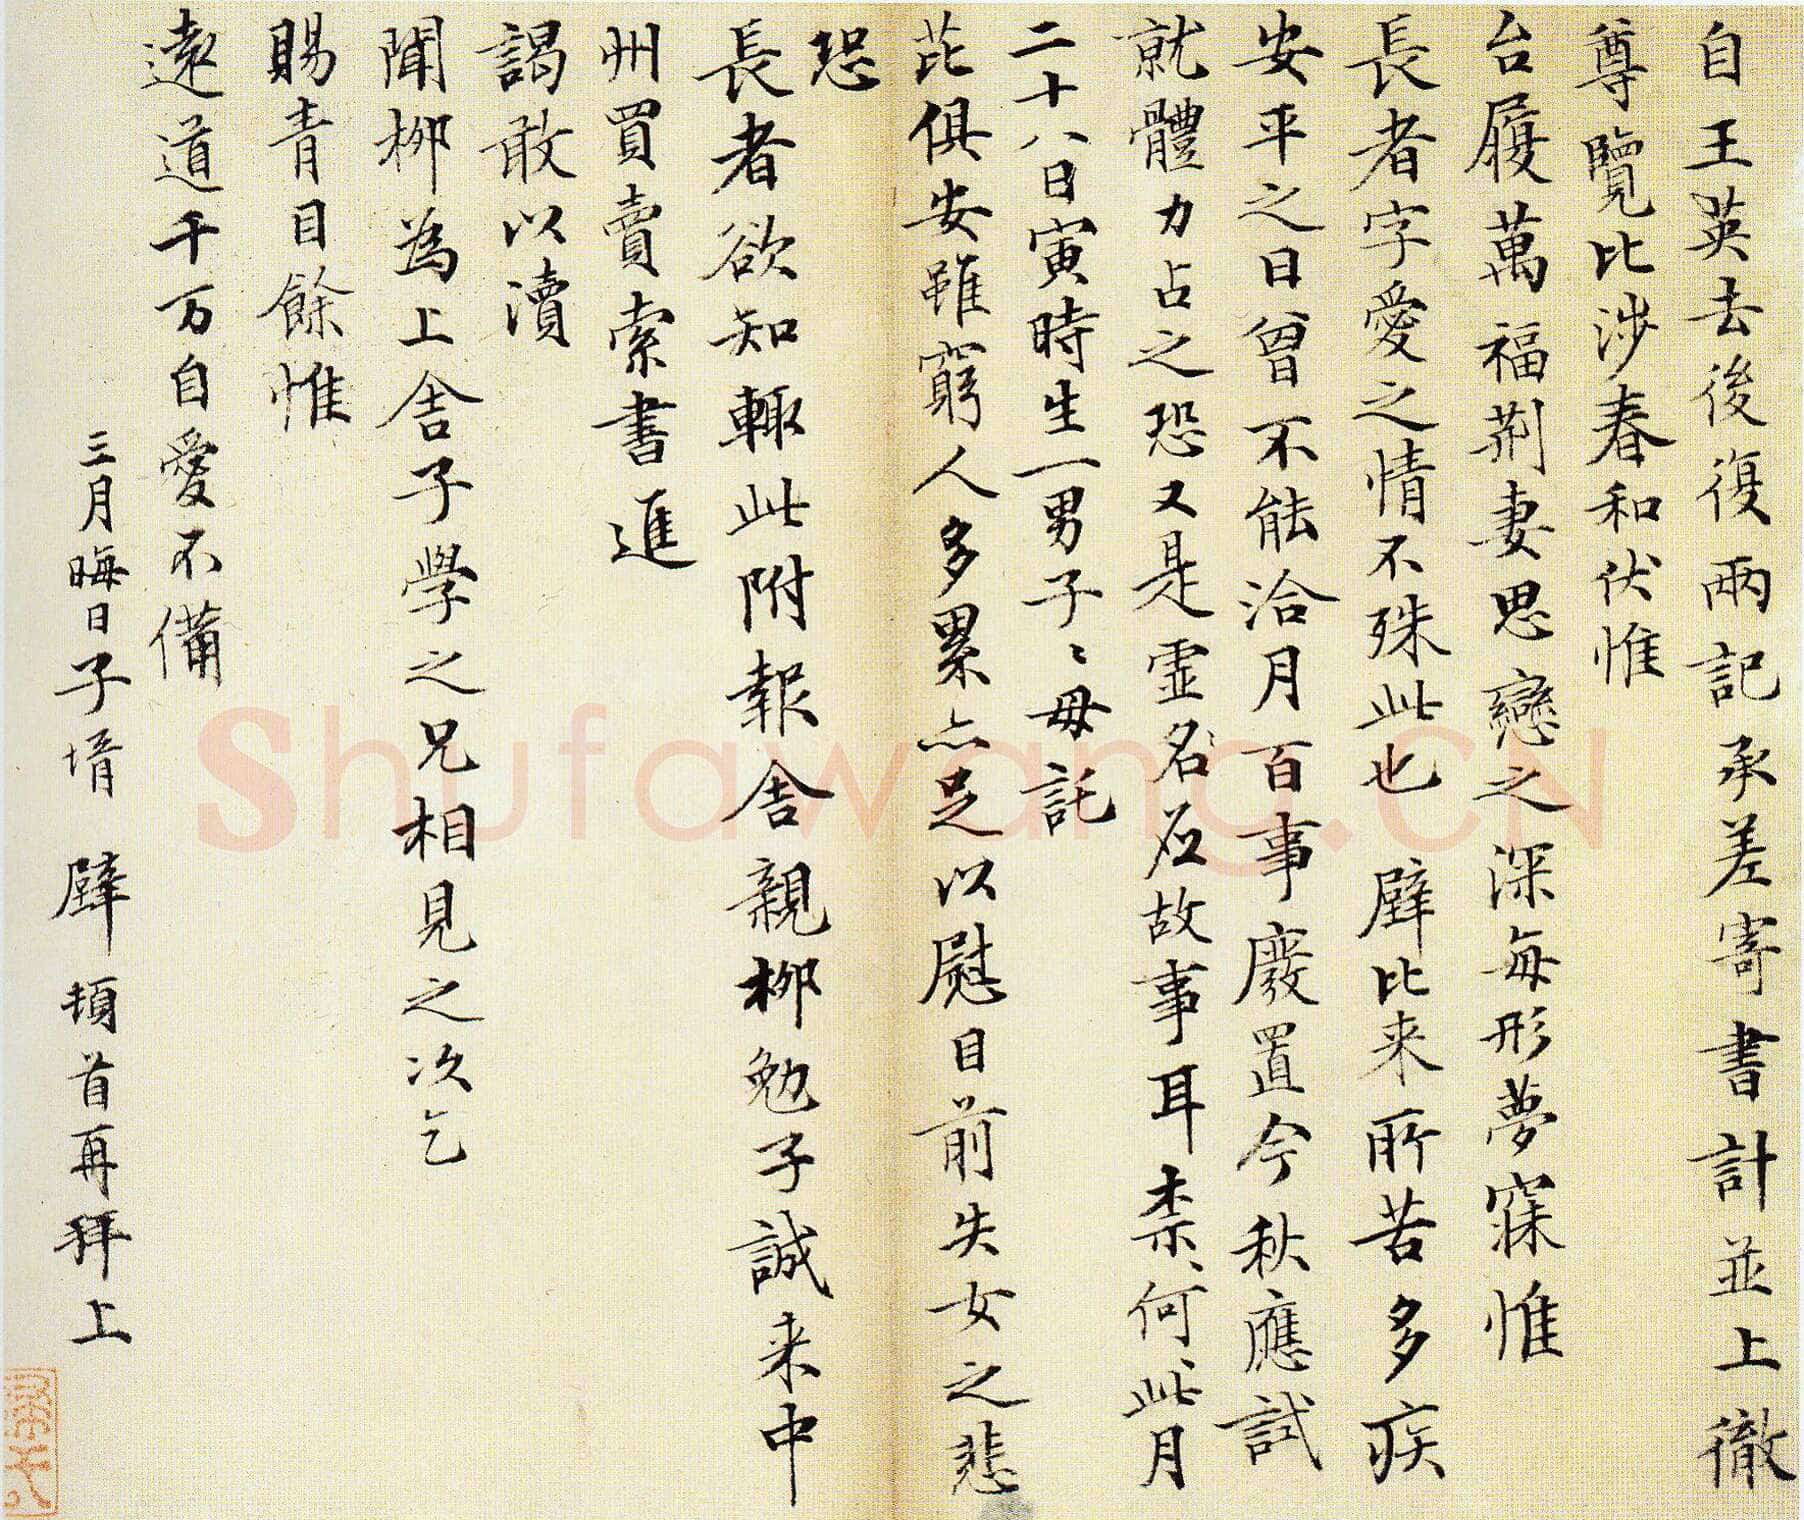 自王英去後復兩記承差寄書計並上徹
尊覽比涉春和伏惟
台履萬福荆妻思戀之深每形夢寐惟
長者字愛之情不殊此也 璧比来所苦多疾
安平之日曾不能洽月百事廢置今秋應試
就體力占之恐又是虛名石故事耳柰何柰何此月
二十八日寅時生一男子子母託
芘俱安雖窮人多累亦足以慰目前失女之悲
恐
長者欲知輙此附報舍親柳勉子誠来中
州買賣索書進
謁敢以瀆
聞栁為上舍子學之兄相見之次乞
賜青目餘惟
遠道千万自愛不備
三月晦日子壻 璧 頓首再拜上
Shufawang.CN